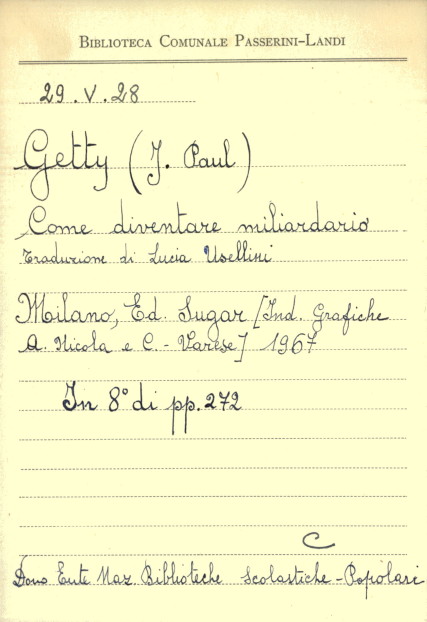 BIBLIOTECA COMUNALE PASSERINI-LANDI
29.V.28
Getty (J. Paul)
Come diventare miliardario
Traduzione di Lucia Usellini
Milano, Ed. Sugar [Ind. Grafiche
A. Nicola e C. - Varese] 1967
In 8° di pp. 272
C
Dono Ente Naz. Biblioteche Scolastiche - Popolari